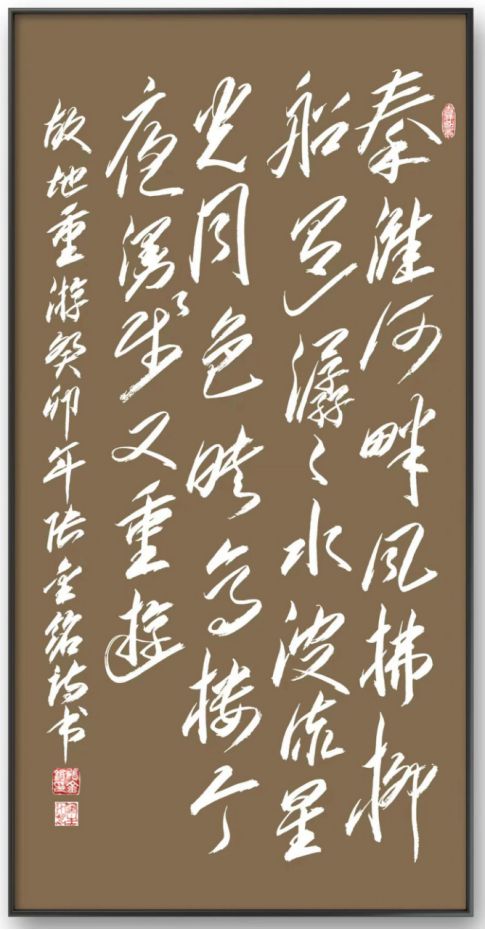 秦淮河畔风拂柳
船过潺〻水波流星
光月色映高楼今
夜漫步又重遊
故地重游癸卯年张金铭诗书